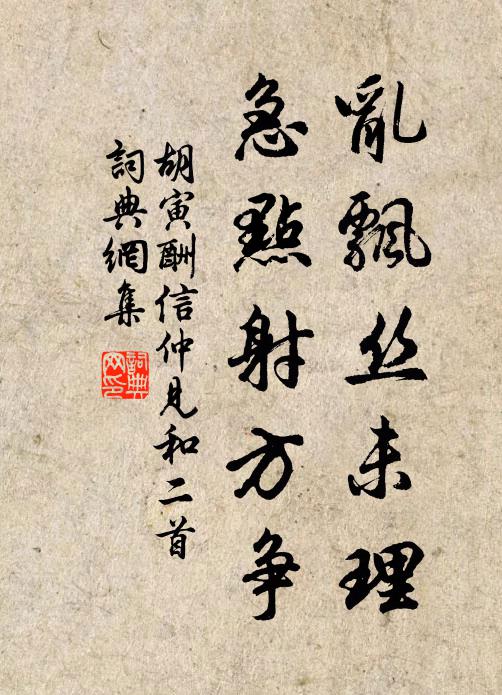 亂飄丝未理
急點射方争
胡寅酬信仲見和二首
詞典網集
詞典网印